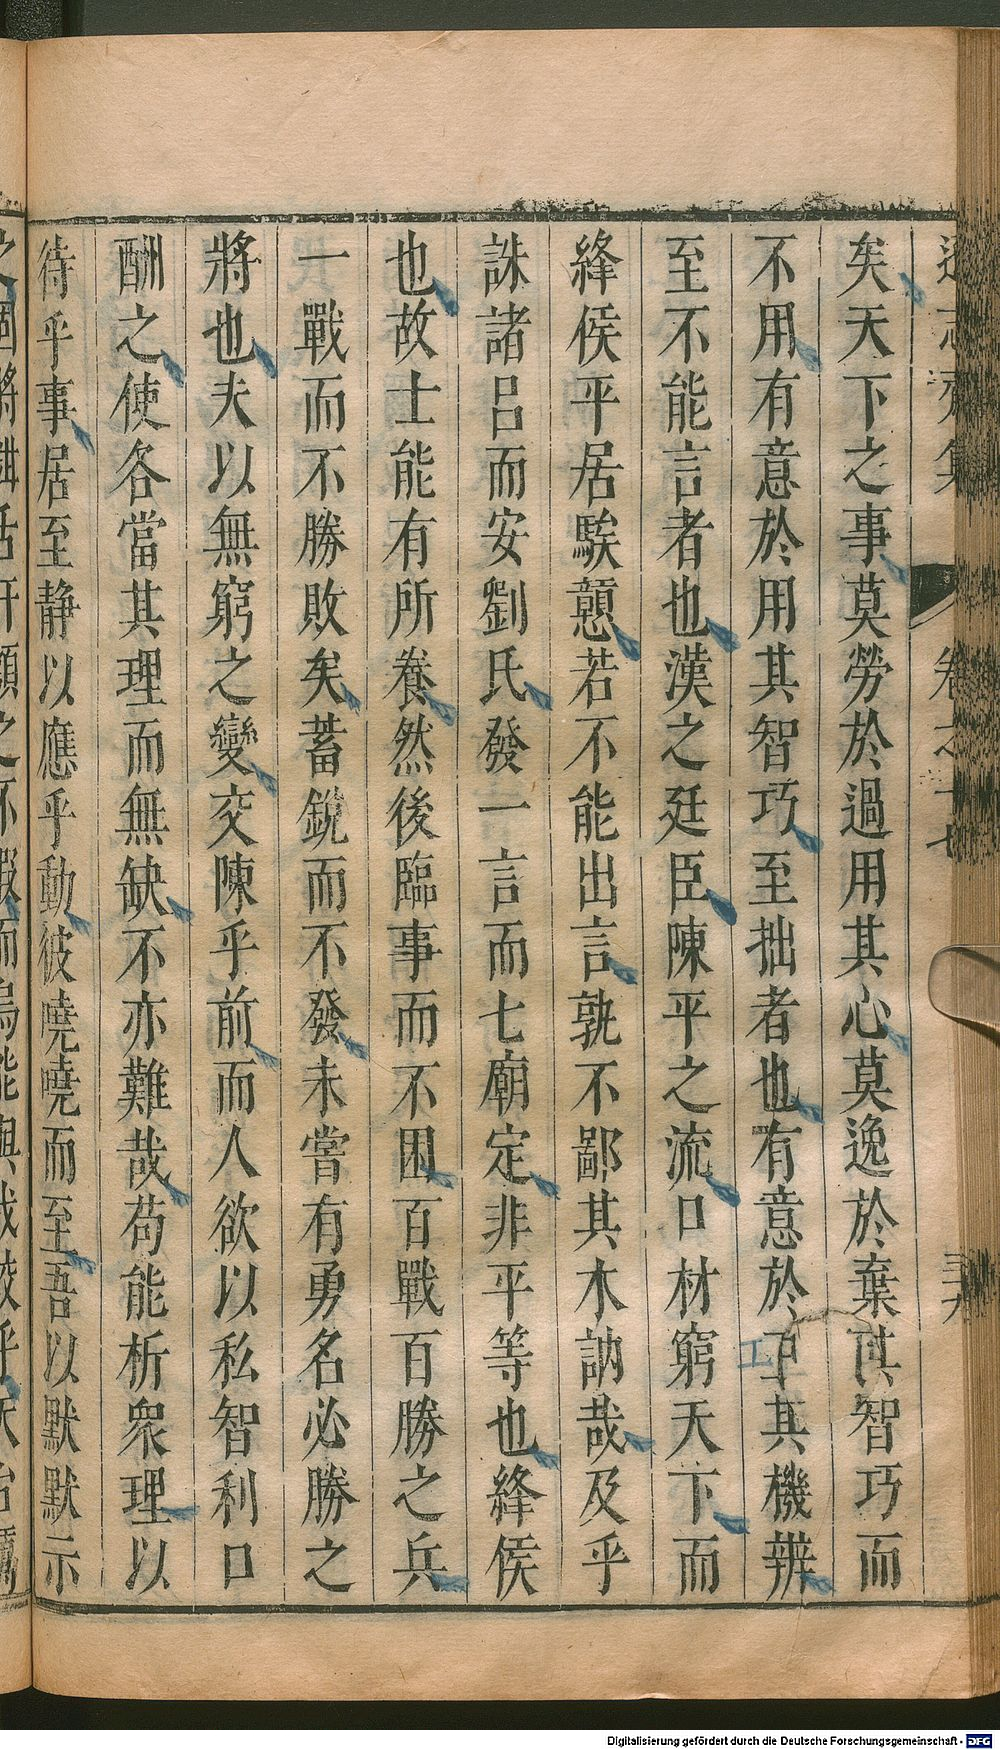 遜志齋集 卷之十七 三六
矣天下之事莫勞於過用其心莫逸於棄其智巧而
不用有意於用其智巧至拙者也有意於工其機辨
至不能言者也漢之廷臣陳平之流口材窮天下而
絳侯平居騃戇若不能出言孰不鄙其木訥哉及乎
誅諸呂而安劉氏發一言而七廟定非平等也絳侯
也故士能有所養然後臨事而不困百戰百勝之兵
一戰而不勝敗矣蓄銳而不發未嘗有勇名必勝之
將也夫以無窮之變交陳乎前而人欲以私智利口
酬之使各當其理而無缺不亦難哉苟能析衆理以
待乎事居至静以應乎動彼嘵嘵而至吾以默默示
Digitalisierung gefördert durch die Deutsche Forschungsgemeinschaft - DFG